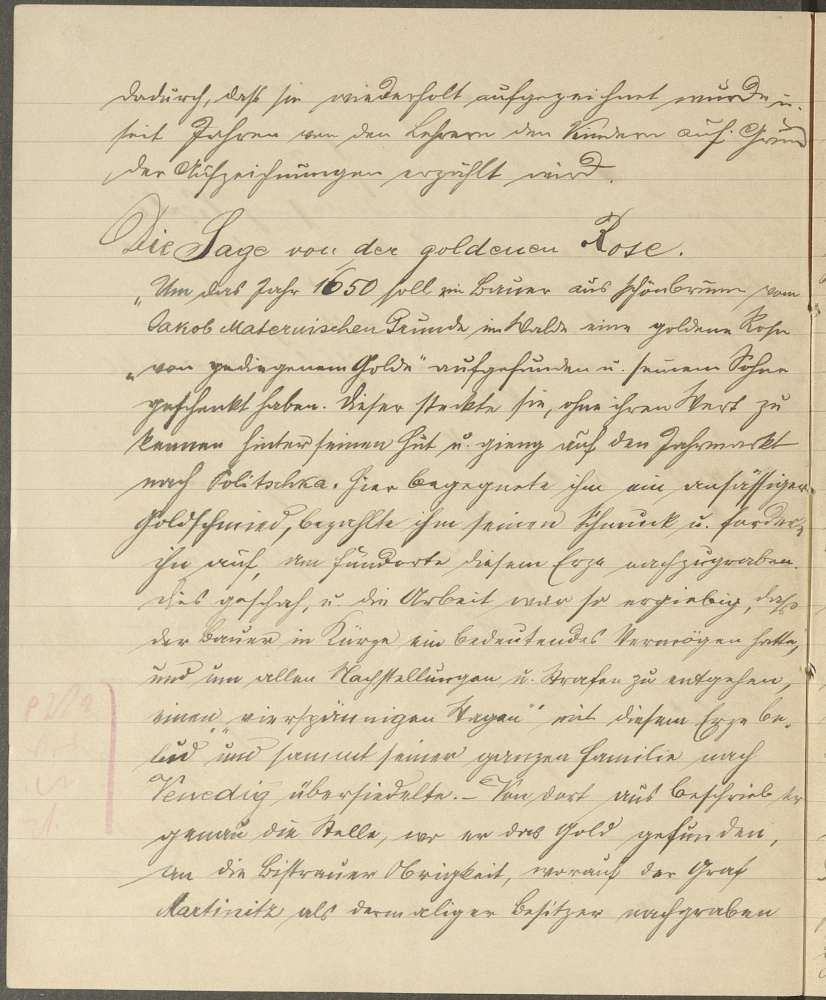 dadurch, daß sie wiederholt aufgezeichnet wurde u.
seit Jahren von den Lehrern den Kindern auf Grund
der Aufzeichnungen erzählt wird.
Die Sage von der goldenen Rose.
„Um das Jahr 1650 soll ein Bauer aus Schönbrunn vom
Jakob Maternischen Grunde im Walde eine goldene Rose
„von gediegenem Golde" aufgefunden u. seinem Sohne
geschenkt haben. Dieser steckte sie, ohne ihren Wert zu
kennen hinter seinen Hut u. gieng auf den Jahrmarkt
nach Politschka. Hier begegnete ihm ein ansässiger
Goldschmied, bezahlte ihm seinen Schmuck u. forderte
ihn auf, am Fundorte diesem Erze nachzugraben.
Dies geschah, u. die Arbeit war so ergiebig, daß
der Bauer in Kürze ein bedeutendes Vermögen hatte,
und um allen Nachstellungen u. Strafen zu entgehen,
einen „vierspännigen Wagen" mit diesem Erze be-
lud und sammt seiner ganzen Familie nach
Venedig übersiedelte. – Von dort aus beschrieb er
genau die Stelle, wo er das Gold gefunden,
an die Bistrauer Obrigkeit, worauf der Graf
Martinitz als dermaliger Besitzer nachgraben